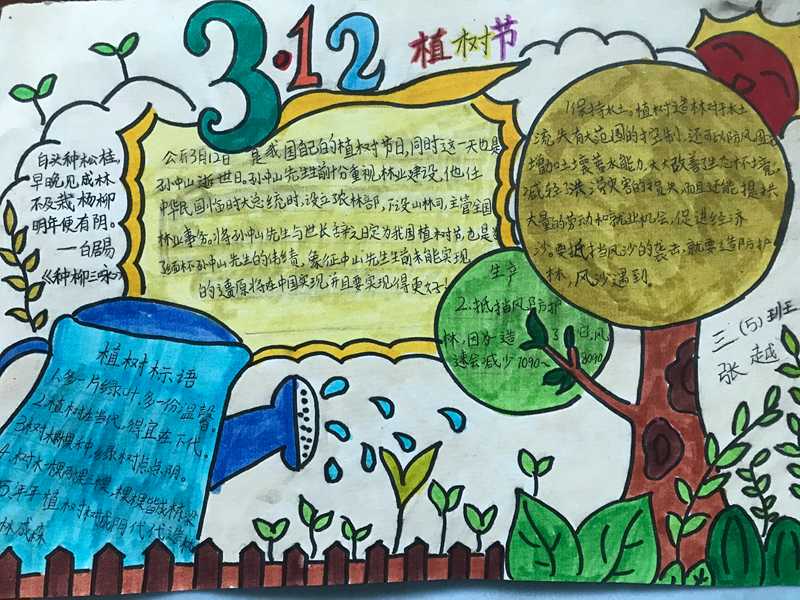 3·12
植树节
白头种松桂,
早晚见成林
不及栽杨柳
明年便有阴。
——白居易
《种柳三咏》
公历3月12日 是我国自己的植树节日,同时这一天也是
孙中山逝世日。孙中山先生生前十分重视林业建设,他任
中华民国临时大总统时,设立农林部,下设山林司,主管全国
林业事务。将孙中山先生与世长辞之日定为我国植树节,也是为
缅怀孙中山先生的伟绩,象征中山先生生前未能实现
的遗愿将在中国实现并且要实现得更好!
1.保持水土。植树造林对于水土
流失有大范围的控制,还可以防风固
增加土壤蓄水能力,大大改善生态环境,
减轻洪涝灾害的损失,而且还能提供
大量的劳动和就业机会,促进经济
沙。要抵挡风沙的袭击,就要造防护
林,风沙遇到
生产
2.抵挡风
林,因为造
速会减少7090~8090
三(5)班王
张越
植树标语
1.多一片绿叶,多一份温馨。
2.植树在当代,得宜在下代。
3.树木棵棵种,绿树点点阴。
5.年年植树树成阴代代造林
林成森